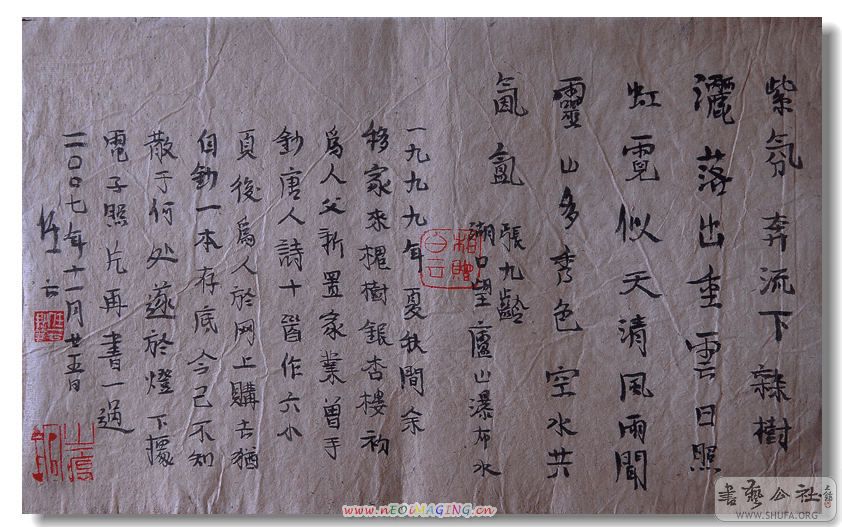 紫氛奔流下雜樹
灑落出重雲日照
虹霓似天清風雨聞
靈山多秀色空水共
氤氳
張九齡
湖口望廬山瀑布水
相贈
白云
一九九九年夏秋間余
移家來槐樹銀杏樓初
爲人父新置家業曾手
鈔唐人詩十首作六小
頁後爲人於网上購去猶
自鈔一本存底今已不知
散于何处遂於燈下據
電子照片再書一過
二〇〇七年十一月廿五日
www.nEOiMAGiNG.cn
書藝公社
WWW.SHUFA.ORG